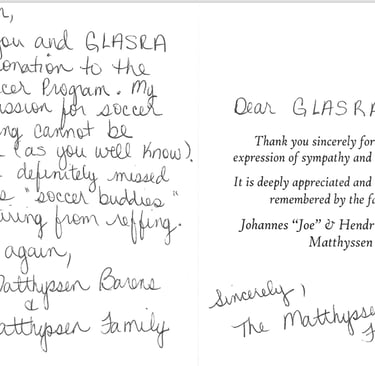 you and GLASRA
onation to the
cer Program. My
assion for soccer
ng cannot be
(as you well know).
definitely missed
s "soccer buddies"
iring from reffing.
again,
Matthyssen Barens
&
atthyssen Family
Dear GLASRA
Thank you sincerely for
expression of sympathy and
It is deeply appreciated and
remembered by the fa
Johannes "Joe" & Hendr
Matthyssen
Sincerely,
The Matthysse
F